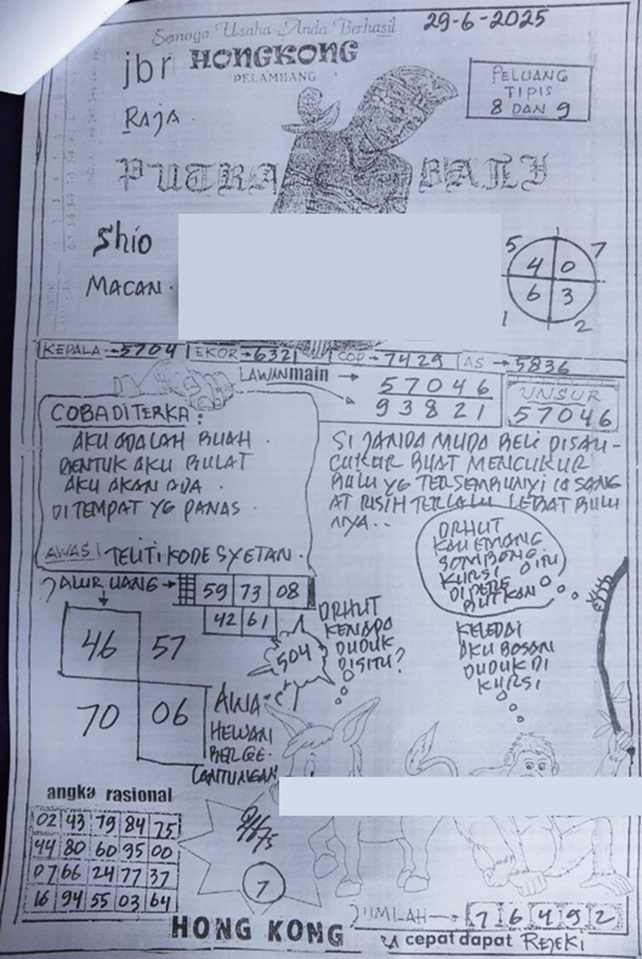 Semoga Usaha Anda Berhasil
29-6-2025
jbr HONGKONG
PELAMBANG
PELUANG
TIPIS
8 DAN 9
RAJA
PUTRA BALI
Shio
MACAN.
5 7
4 0
6 3
1 2
KEPALA→5704 EKOR→6321 COP→7429 AS→5836
LAWAN main → 57046
93821
UNSUR
57046
COBA DITERKA:
AKU ADALAH BUAH.
BENTUK AKU BULAT
AKU AKAN ADA.
DITEMPAT YG PANAS.
AWAS! TELITI KODE SYETAN.
SI JANDA MUDA BELI PISAU-
CUKUR BUAT MENCUKUR
BULU YG TERSEMBUNYI IA SANG
AT RISIH TERLALU LEBAT BULU
NYA..
DRHUT
KAU EMANG
SOMBONG.
KURSI ITU
DIPERE
BUTKAN
ALUR UANG→ 59 73 08
42 61
46 57
70 06
504
DRHUT
KENAPA
DUDUK
DISITU?
KELEDAI
AKU BOSAN
DUDUK DI
KURSI
AWA
HEWAN
BERGE-
LANTUNGAN
angka rasional
02 43 79 84 75
44 80 60 95 00
07 66 24 77 37
16 94 55 03 64
7
JUMLAH→ 7 6 4 9 2
HONG KONG
cepat dapat REJEKI